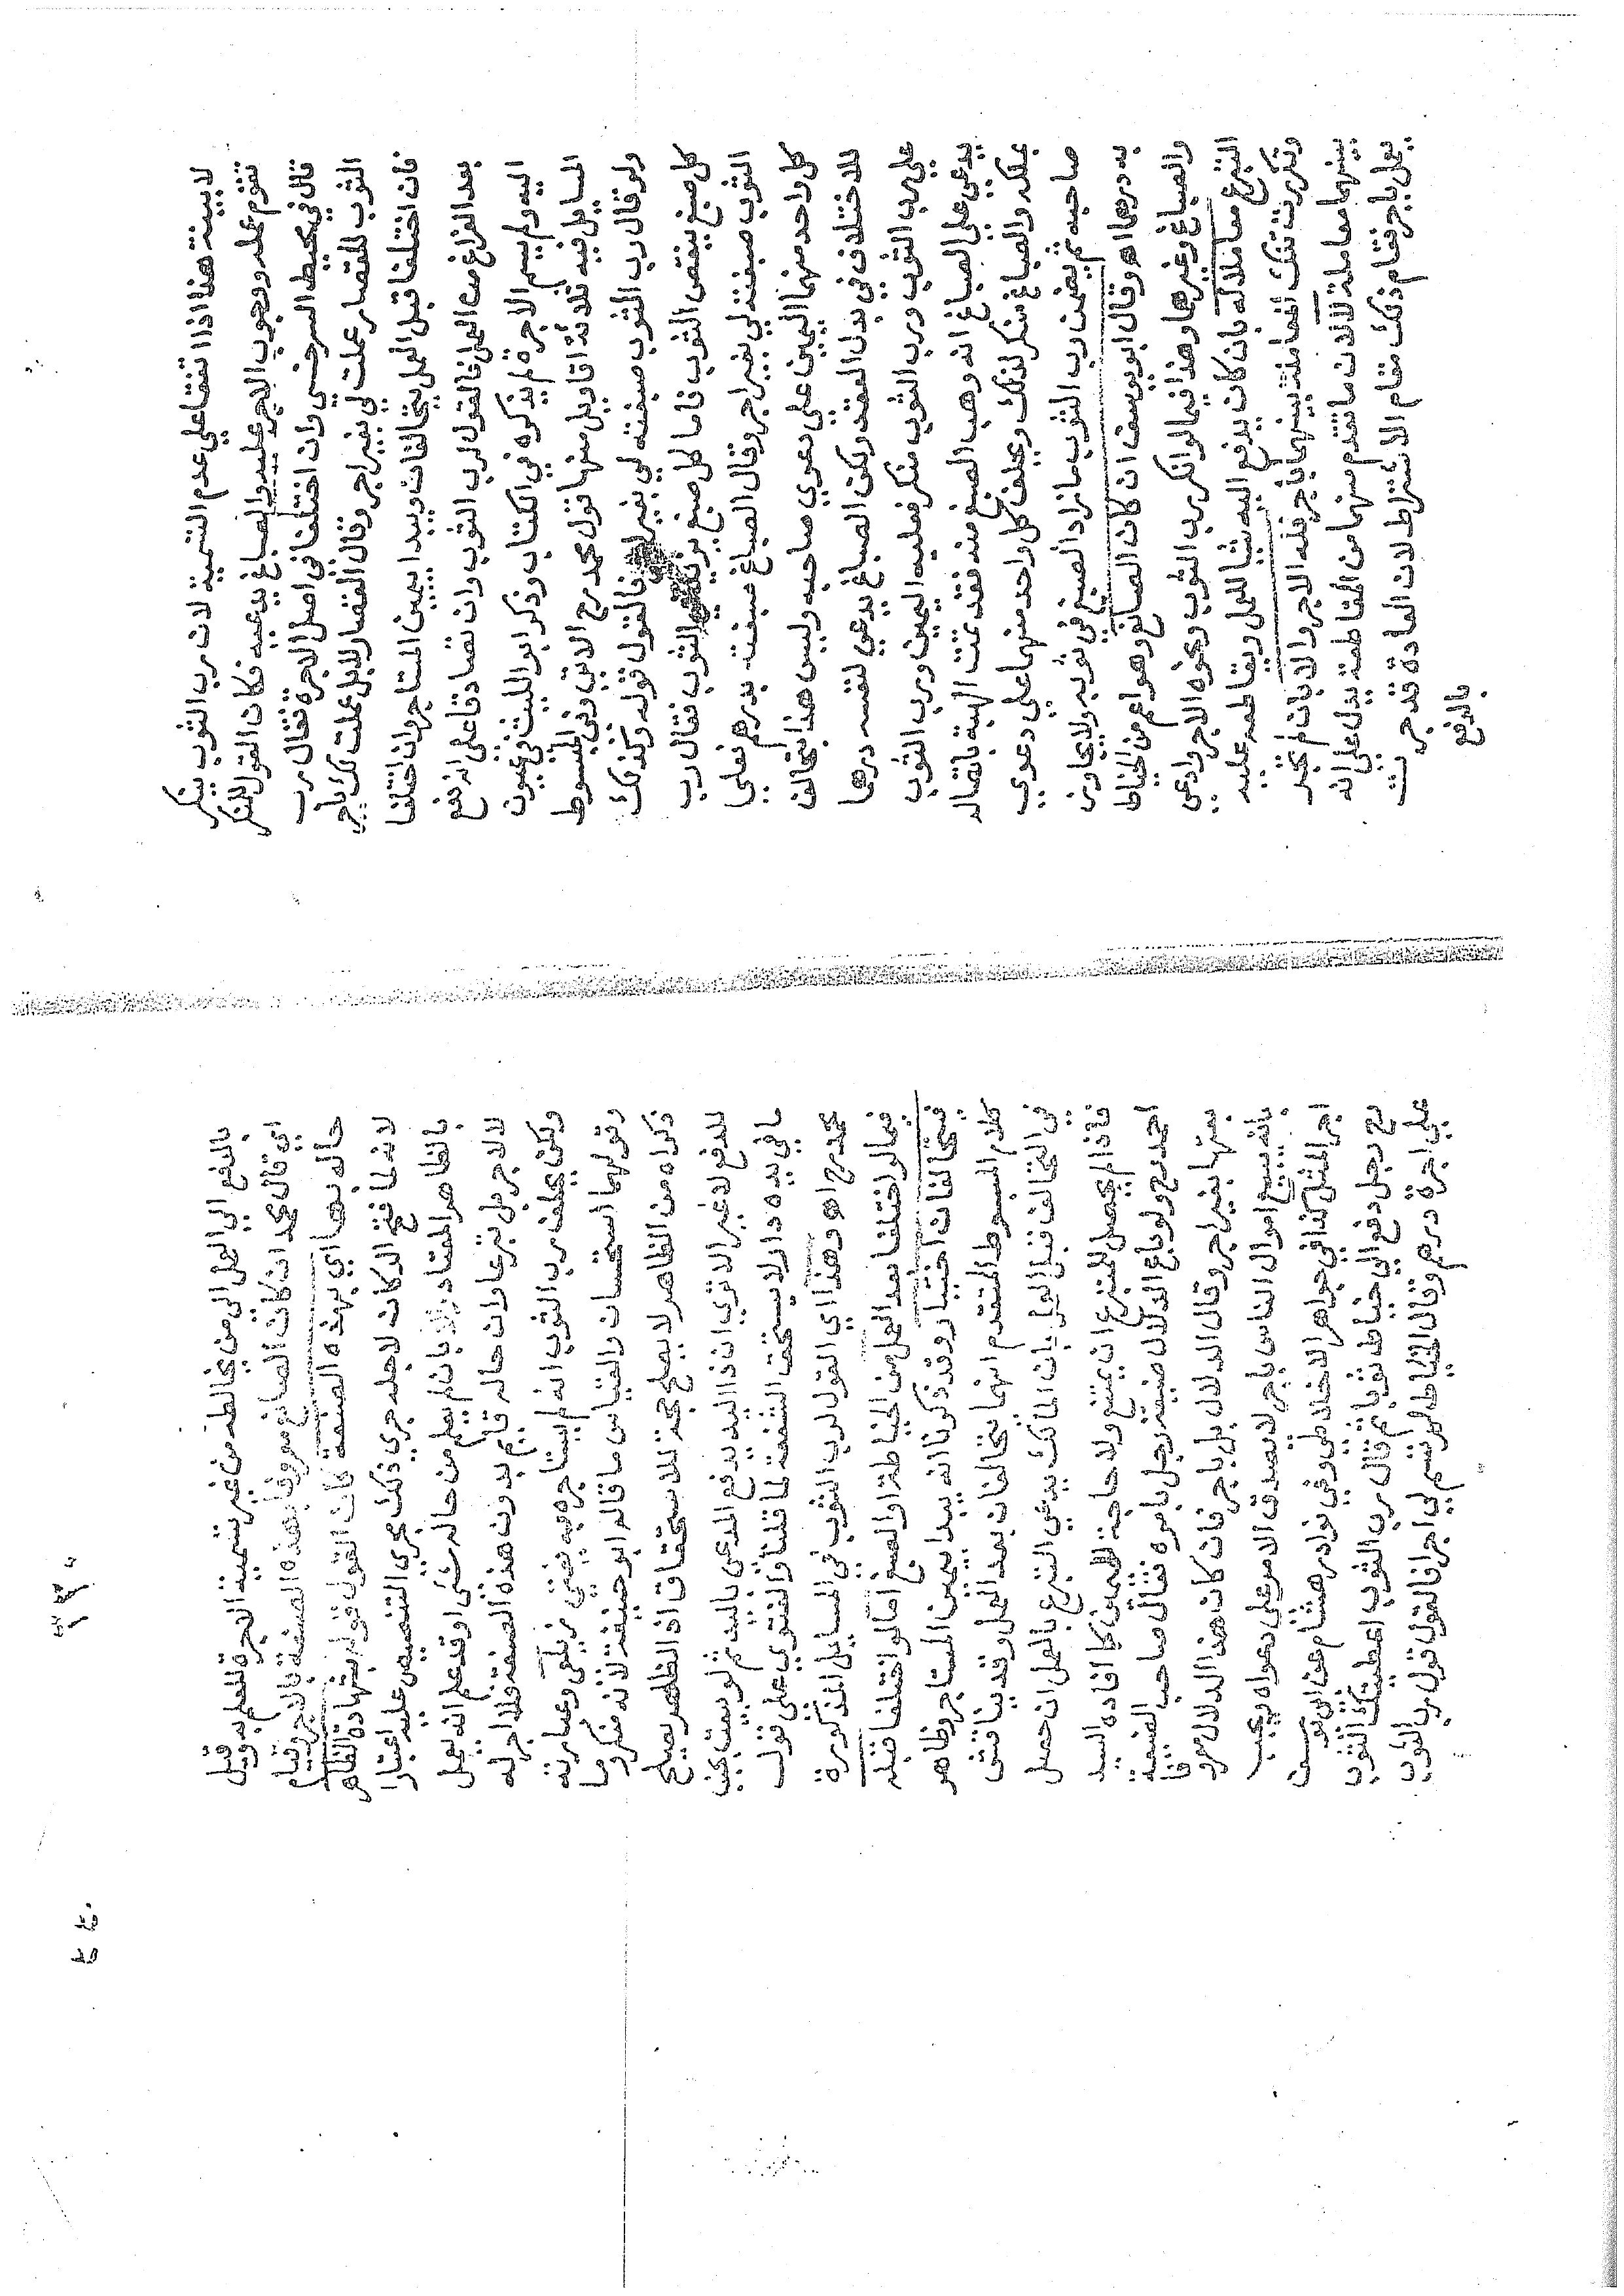 لا بينة هذا اذا اتفقا علي عدم التسمية لان رب الثوب ينكر
تقوم عمله ووجوب الاجر عليه والصباغ يدعيه فكان القول للمنكر
قال في محيط السرخسي وان اختلفا في اصل الاجرة فقال رب
الثوب للقصار عملت لي بغير اجر وقال القصار لا بل عملت لك باجر
فان اختلفا قبل العمل يتحالفان ويبدا بيمين المستاجر وان اختلفا
بعد الفراغ من العمل فالقول لرب الثوب وان تصادقا على انه دفع
اليه ولم يسم الاجرة لم يذكره في الكتاب وذكر ابو الليث في عيون
المسايل فيه ثلاثة اقاويل منها قول محمد رح الاتي وفي المبسوط
ولو قال رب الثوب صبغته لي بغير اجر فالقول قوله وكذلك
كل صبغ ينقص الثوب فاما كل صبغ يزيد الثوب فقال رب
الثوب صبغته لي بغير اجر وقال الصباغ صبغته بدرهم فعلي
كل واحد منهما اليمين على دعوي صاحبه وليس هذا بتحالف
للاختلاف في بدل العقد ولكن الصباغ يدعي لنفسه درهما
علي رب الثوب ورب الثوب منكر فعليه اليمين ورب الثوب
يدعي علي الصباغ انه وهب الصبغ منه فقد تمت الهبة باتصاله
بملكه والصباغ منكر لذلك ويحلف كل واحد منهما علي دعوي
صاحبه ثم يضمن رب الثوب ما زاد الصبغ في ثوبه ولا يجاوز
به درهما اهـ وقال ابو يوسف ان كان الصانع وهو اعم من الخياط
والصباغ وغيرهما وهذا فيما لو انكر رب الثوب ونحوه الاجر وادعى
التبرع معاملا له بان كان يدفع اليه شيا للعمل ويقاطعه عليه
وتكررت تلك المعاملة بينهما باجر فله الاجر والا بان لم تجر
بينهما معاملة لا لان ما تقدم منهما من المقاطعة يدل على انه
يعمل باجر فقام ذلك مقام الاشتراط لان العادة قد جرت
بالدفع
بالدفع الي العمل الى من يخالطه من غير تسمية الاجرة للعلم به وقيل
اي قال محمد ان كان الصانع معروفا بهذه الصنعة بالاجر وقيام
حاله بها اي بهذه الصنعة كان القول قوله بشهادة الظاهر
لانه لما فتح الدكان لاجله جري ذلك مجرى التنصيص عليه اعتبارا
بالظاهر المعتاد والا بان لم يعلم من حاله شئ او قد علم انه يعمل
لا لاجر بل تبرعا وان حاله قايم بدون هذه الصنعة فلا اجر له
ولكن يحلف رب الثوب انه لم يستاجره به يفتي زيلعي وعبارته
وقولهما استحسان والقياس ما قاله ابو حنيفة لانه منكر وما
ذكراه من الظاهر لا يصلح حجة للاستحقاق اذ الظاهر يصلح
للدفع لا غير الا تري ان ذا اليد يدفع المدعي باليد ثم لو بيعت بجنب
ما في يده دار لا يستحق الشفعة لما قلنا والفتوي علي قول
محمد رح اهـ وهذا اي القول لرب الثوب في المسايل المذكورة
فيما لو اختلفا بعد العمل من الخياطة او الصبغ اما لو اختلفا قبله
فيتحالفان اختيار وقد ذكرنا انه يبدا بيمين المستاجر وظاهر
كلام المبسوط المتقدم انهما يتحالفان بعد العمل وقد يناقش
في التحالف قبل العمل بان المالك يدعي التبرع بالعمل ان حصل
فاذا لم يحصل للمتبرع ان يمتنع ولا حاجة لليمين كما افاده السيد
احمد رح ولو باع الدلال ضيعة رجل بامره فقال صاحب الضيعة
بعتها بغير اجر وقال الدلال بل باجر فان كان هذا الدلال معروفا
بانه يبيع اموال الناس باجر لا يصدق الامر علي دعواه ويجب
اجر المثل كذا في جواهر الاخلاطي وفي نوادر هشام عن ابي يوسف
رح رجل دفع الي خياط ثوبا ثم قال رب الثوب اعطيتك الثوب
علي اجرة درهم وقال الخياط لم تسم لي اجرا فالقول قول رب الثوب